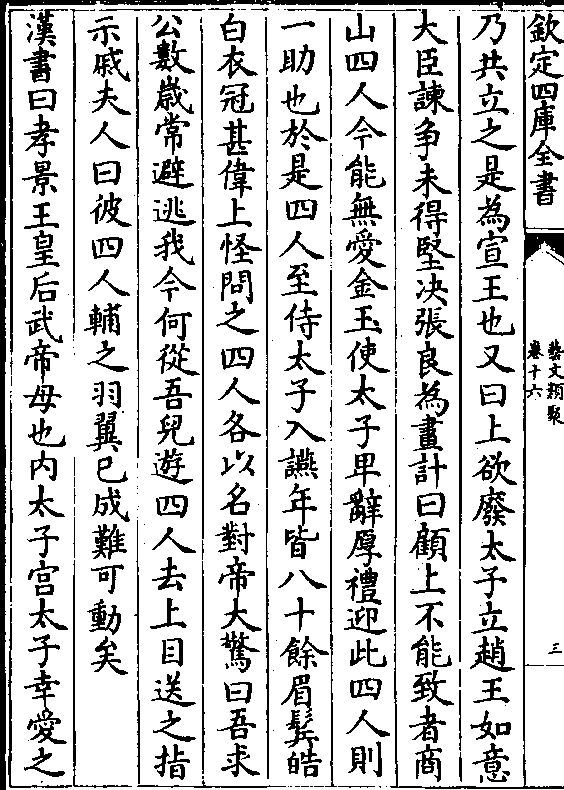 欽定四庫全書
藝文類聚
卷十六
三
乃共立之是為宣王也又曰上欲廢太子立趙王如意
大臣諫争未得堅決張良為畫計曰顧上不能致者商
山四人今能無愛金玉使太子卑辭厚禮迎此四人則
一助也於是四人至侍太子入讌年皆八十餘眉鬓皓
白衣冠甚偉上怪問之四人各以名對帝大驚曰吾求
公數歳常避逃我今何從吾兒遊四人去上目送之指
示戚夫人曰彼四人輔之羽翼已成難可動矣
漢書曰孝景王皇后武帝母也内太子宫太子幸愛之